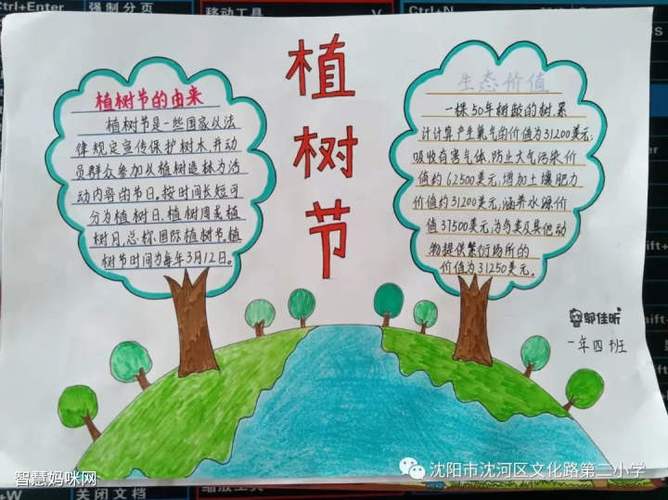 Ctrl+Enter
强制分页
移动工具
V
Ctrl+N
植树节
植树节的由来
植树节是一些国家以法
律规定宣传保护树木,并动
员群众参加以植树造林为活
动内容的节日,按时间长短可
分为植树日,植树周或植
树月,总称国际植树节,植
树节时间为每年3月12日。
生态价值
一棵50年树龄的树,累
计计算产生氧气的价值为31200美元;
吸收有害气体,防止大气污染价
值约62500美元;增加土壤肥力
价值约31200美元;涵养水源价
值37500美元;为鸟类及其他动
物提供繁衍场所的
价值为31250美元。
郭佳昕
一年四班
智慧妈咪网
沈阳市沈河区文化路第二小学
关闭文档
缩放工具